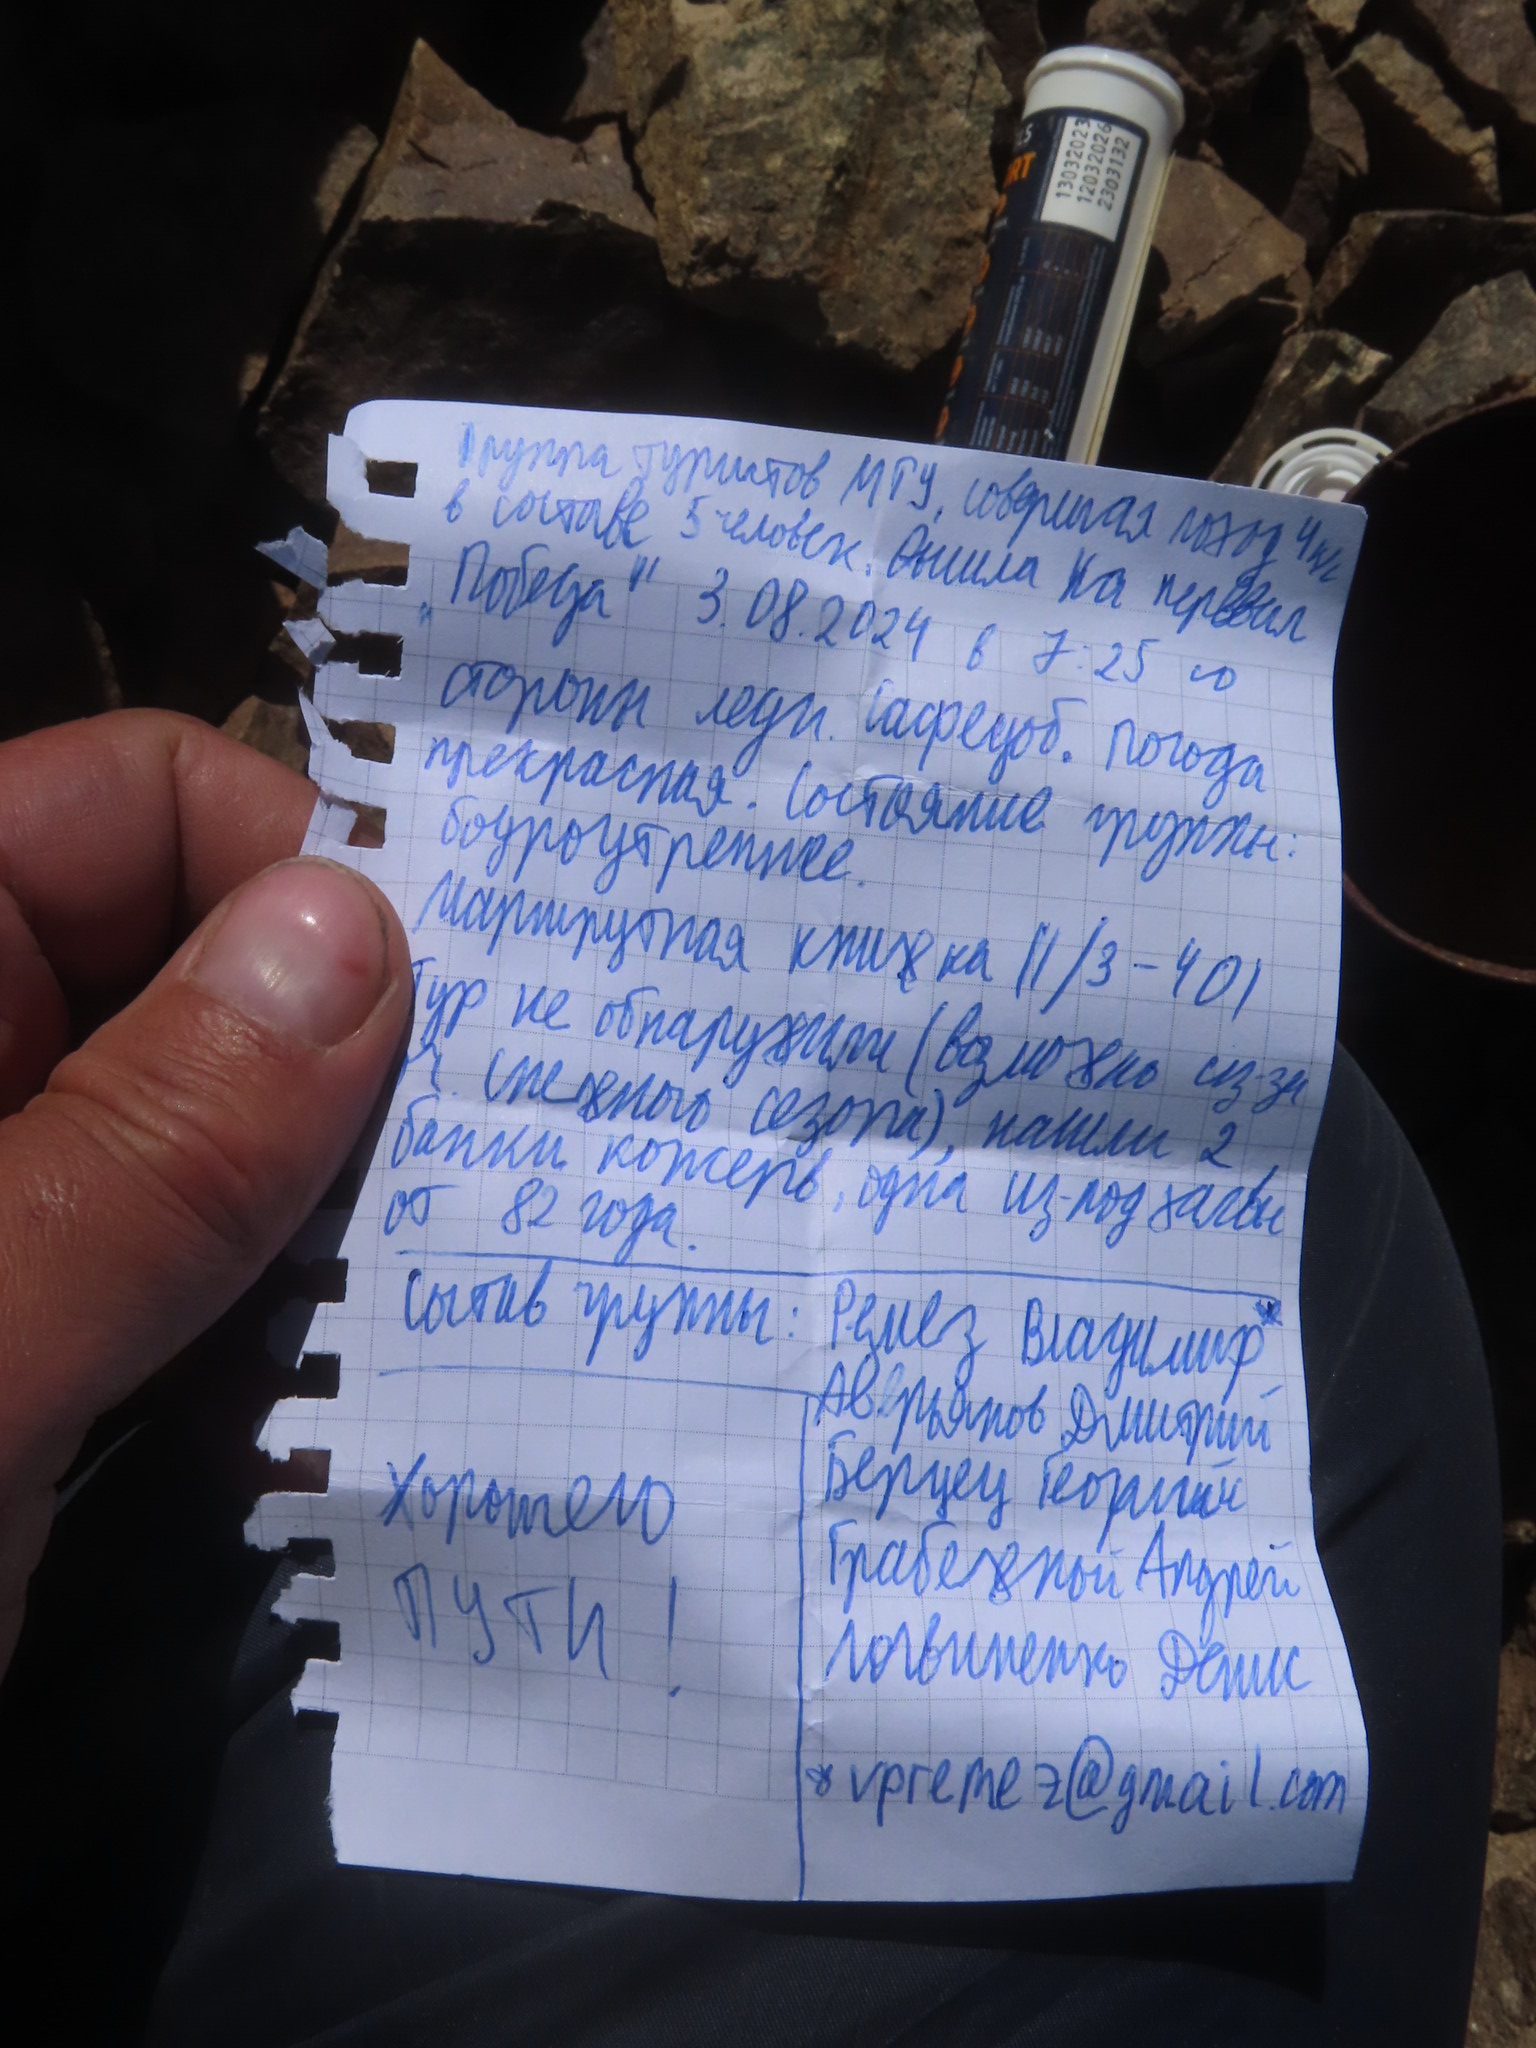 13032023
12032026
2303132
Группа туристов МГУ, совершая поход 4 к/с
в составе 5 человек. Вышла на перевал
"Победа" 3.08.2024 в 7:25 со
стороны ледн. Сафедоб. Погода
прекрасная. Состояние группы:
бодроутреннее.
Маршрутная книжка 11/3-401
Тур не обнаружили (возможно из-за
снежного сезона), нашли 2
банки консерв, одна из-под халвы
от 82 года.
Состав группы: Ремез Владимир*
Аверьянов Дмитрий
Берцец Георгий
Грабежной Андрей
Логвиненко Денис
Хорошего
ПУТИ!
*vpremez@gmail.com